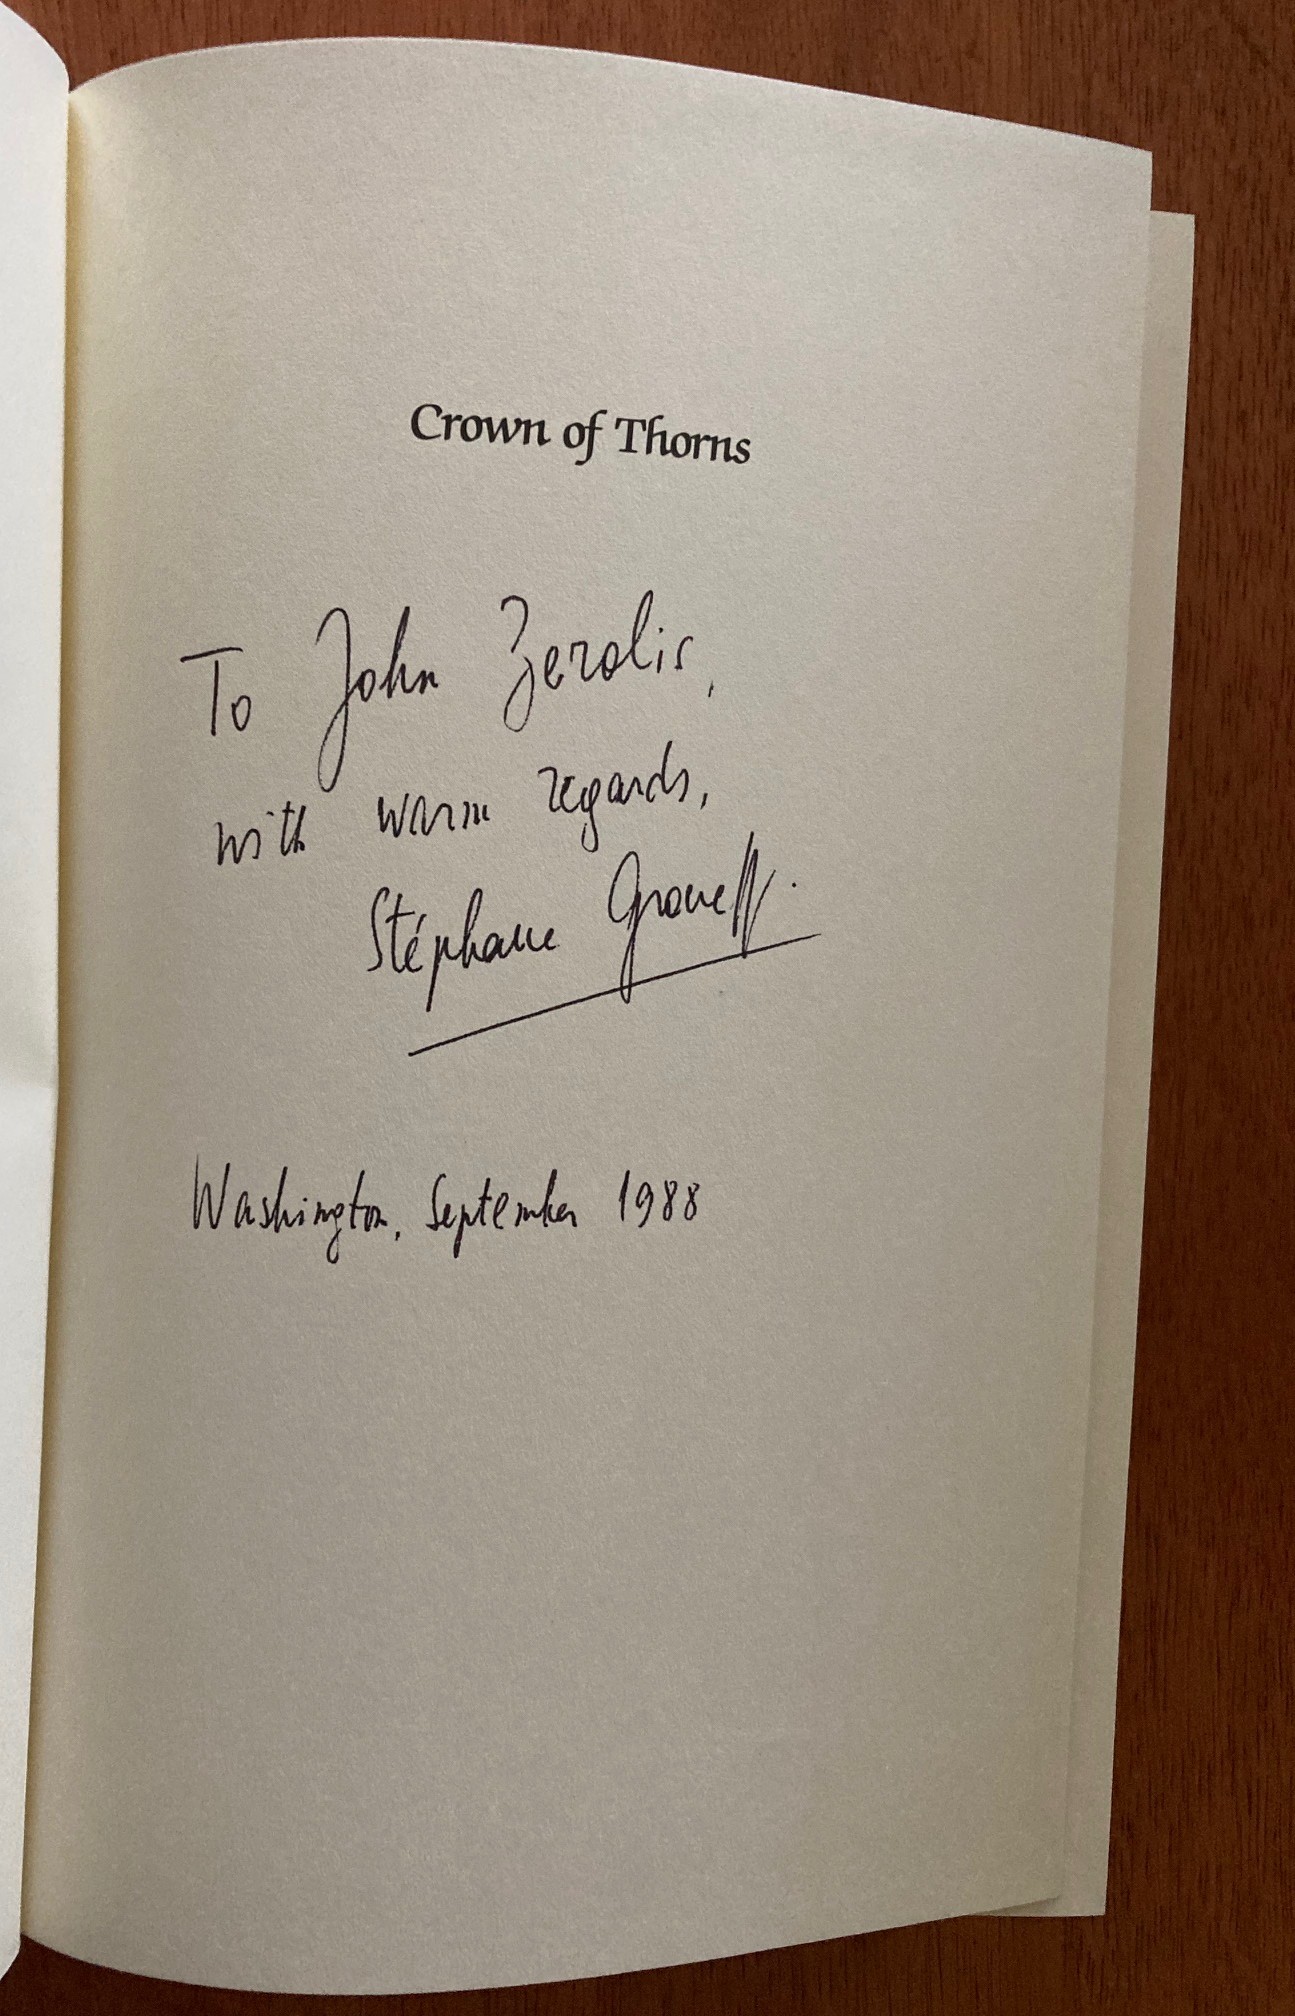 Crown of Thorns
To John Zerolis,
with warm regards,
Stéphane Groueff.
Washington, September 1988